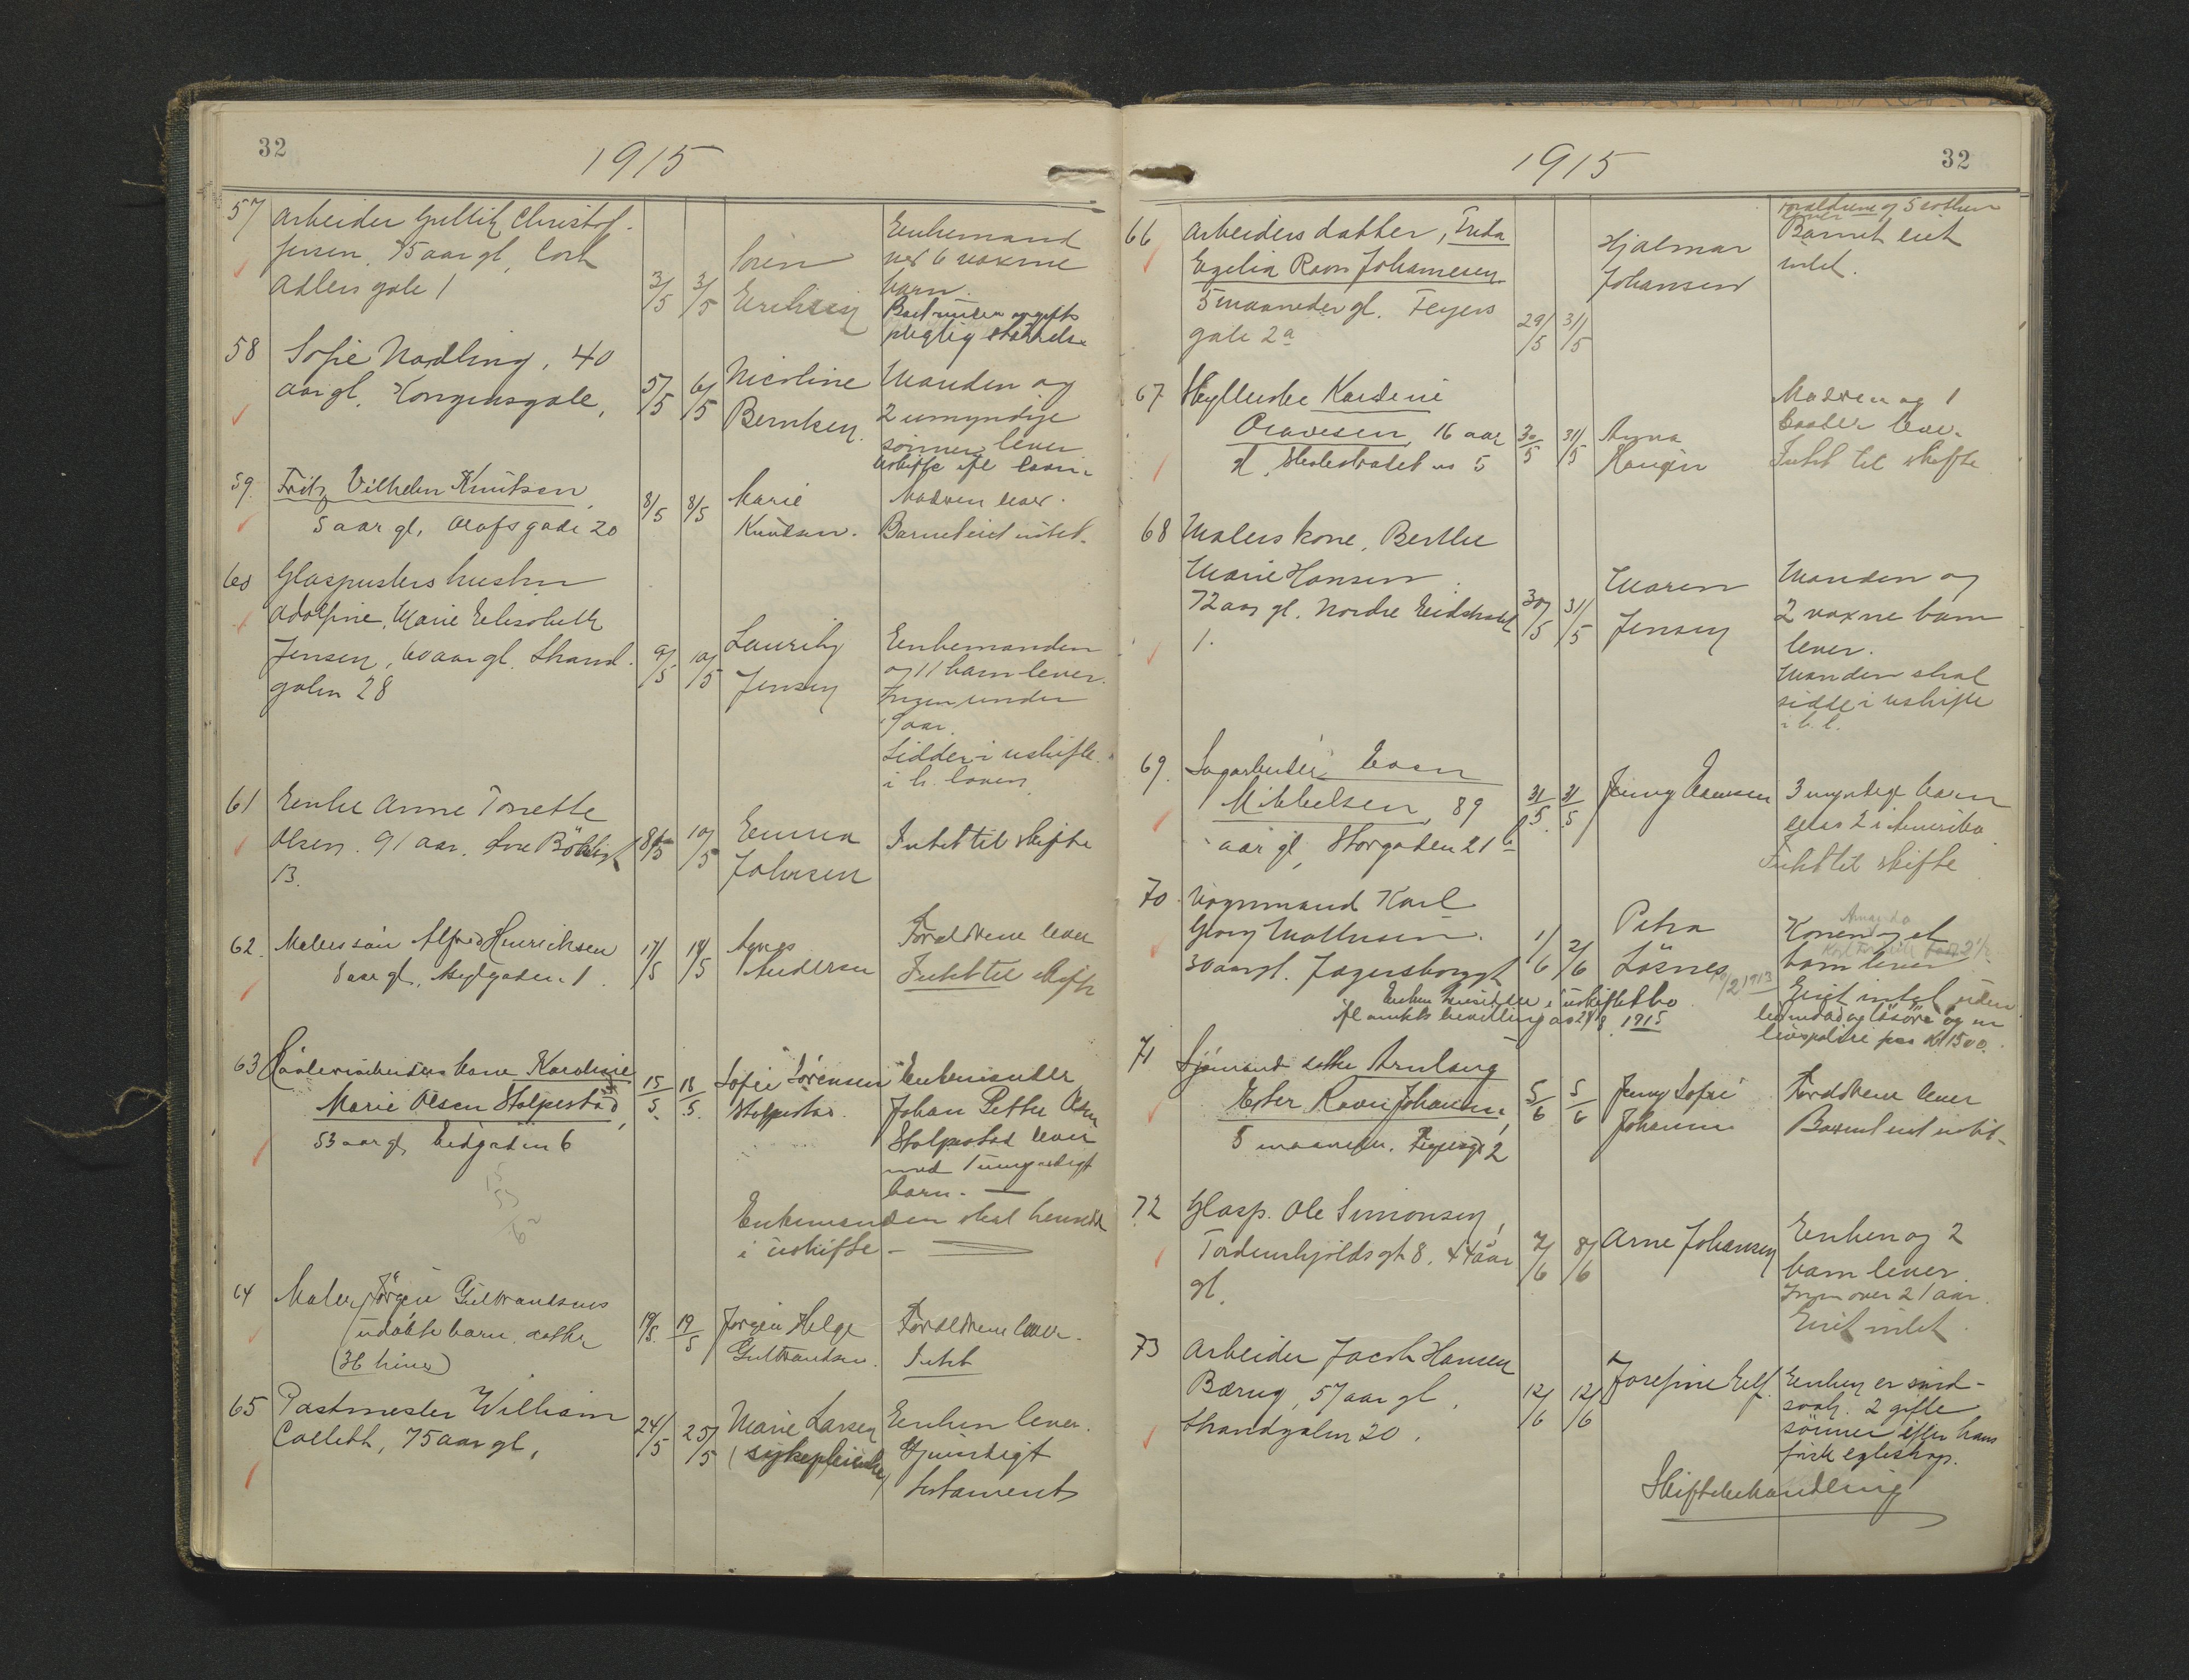 32
1915
57 Arbeider Gullik Christof.
Jensen, 75 aar gl, Cort
Adlers gate 1
3/5 3/5
Sören
Eriksen
Enkemand
med 6 voxne
barn.
58 Sofie Nordling, 40
aar gl. Kongensgate,
5/5 6/5
Nicoline
Berntsen.
Manden og
2 umyndige
sønner lever
59 Fritz Vilhelm Knutsen,
5 aar gl, Olafsgade 20
8/5 8/5
Marie
Knudsen.
Moderen lever.
Barnet eiet intet.
60 Glaspusters hustru
Adolfine Marie Elisabeth
Jensen, 60 aar gl. Strand.
gaten 28
9/5 10/5
Lauritz
Jensen
Enkemanden
og 11 barn lever.
Ingen under
aar.
Sidder i uskifte
i h. loven.
61 Enke Anne Tonette
Olsen. 91 aar.
13.
8/5 10/5
Emma
Johnsen
Intet til skifte
62. Malers søn Alfred Henriksen
aar gl,
17/5 18/5
Agnes
Andersen
Forældrene lever
Intet til skifte
63 kone Karoline
Marie Olsen Stolpestad,
53 aar gl, 6
15/5. 18/5.
Sofie Sörensen
Stolpestad.
Enkemanden
Johan Petter Olsen
Stolpestad lever
med 1 umyndigt
barn. —
Enkemanden skal hensidde
i uskifte —
64 Maler Jörgen Gulbrandsens
udøbte barn datter
(36 timer)
19/5. 19/5
Jørgen Helge
Gulbrandsen.
Forældrene lever.
Intet
65 Postmester William
Collett, 75 aar gl,
24/5 25/5
Marie Larsen
(sykepleierske)
Enken lever.
Gjensidigt
testament
32
1915
66 Arbeiders datter, Frida
Egelia Ravn Johannesen
5 maaneder gl. Feyers
gate 2a
29/5 31/5
Hjalmar
Johansen
Forældrene og 5 søsken
lever
Barnet eiet
intet.
67
16 aar
gl, no 5
30/5 31/5
Anna
Haugen
Moderen og 1
lever.
Intet til skifte
68 Malers kone, Berthe
Marie Hansen
72 aar gl. Nordre
1.
30/5 31/5
Maren
Jensen
Manden og
2 voxne barn
lever.
Manden skal
sidde i uskifte
i h. l.
69. Sagarbeider
Mikkelsen, 89
aar gl, Storgaden 21 b
31/5. 31/5
Jenny
3 myndige barn
2 i Amerika
Intet til skifte
70. Vognmand Karl
Georg Mathisen.
30 aar gl. Jegersborggt
1/6 2/6
Petra
Løsnes
Konen og et
barn lever
10/2 1913
Eiet intet uden
og løsøre og en
livspolise paa Kr 1500.
Enken hensidder i uskiftet bo
ifl amtets bevilling av 24/8 1915
71 Sjømands datter Arnlaug
Ester Ravn Johannsen,
5 maaneder. Feyersgt 2
5/6 5/6
Jenny Sofie
Johannsen
Forældrene lever
Barnet eiet intet.
72 Glasp. Ole Simonsen,
Tordenskjoldsgt 8. 44 aar
gl.
7/6 8/6
Arne Johansen
Enken og 2
barn lever.
Ingen over 21 aar.
Eiet intet.
73 Arbeider Jacob Hansen
Bærug, 57 aar gl.
Strandgaten 20.
12/6 12/6
Josefine
Enken er sind-
svak. 2 gifte
sønner efter hans
første egteskap.
Skiftebehandling